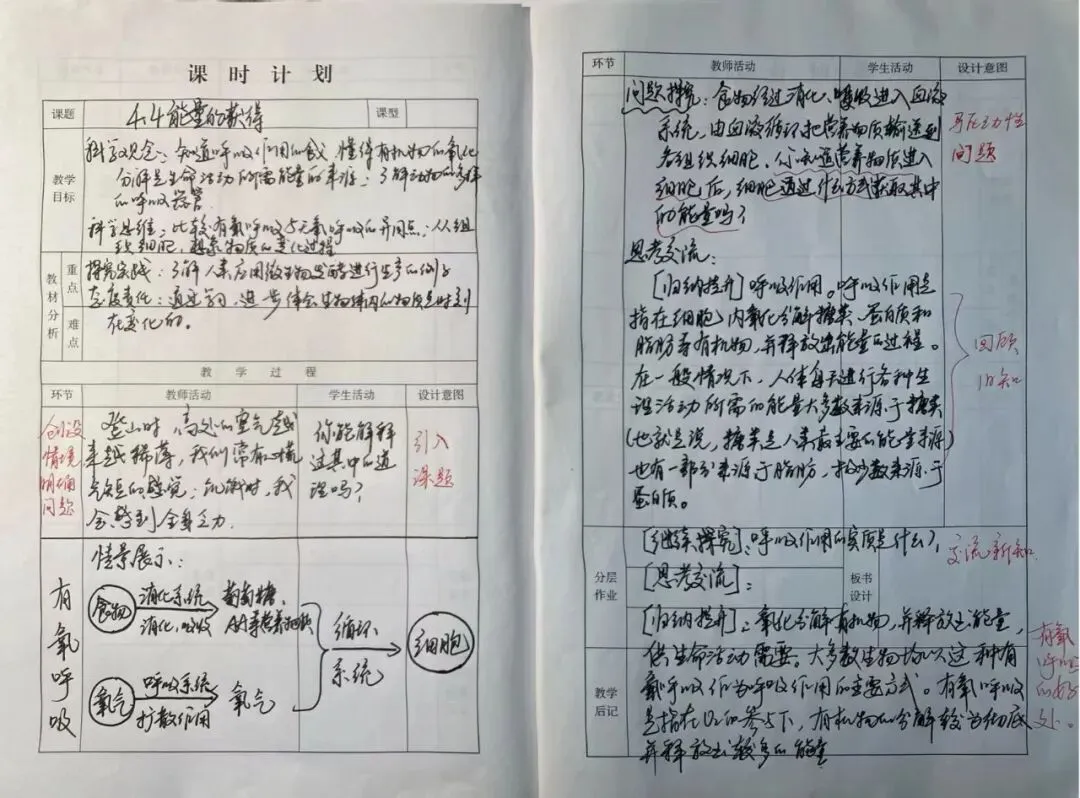 课时计划
课题 4.4能量的获得 课型
教学目标
科学观念：知道呼吸作用的含义，懂得有机物的氧化
分解是生命活动所需能量的来源；了解动物的多样
的呼吸器官
科学思维：比较有氧呼吸与无氧呼吸的异同点；从组
织细胞，想象物质的变化过程
教材分析 重点 难点
探究实践：了解人类应用微生物发酵进行生产的例子
态度责任：通过学习，进一步体会生物体内的物质是时刻
在变化的。
教学过程
环节 教师活动 学生活动 设计意图
创设
情境
明确
问题
登山时，高处的空气越
来越稀薄，我们常有心慌
气短的感觉；饥饿时，我
会感到全身乏力.
你能解释
这其中的道
理吗？
引入
课题
有氧呼吸
情景展示：
食物 消化系统 葡萄糖、
消化、吸收 AA等营养物质
循环
系统
细胞
氧气 呼吸系统 氧气
扩散作用
环节 教师活动 学生活动 设计意图
问题探究：食物经过消化、吸收进入血液
系统，由血液循环把营养物质输送到
各组织细胞，你知道营养物质进入
细胞后，细胞通过什么方式获取其中
的能量吗？
问题
思考交流：
[归纳提升]呼吸作用。呼吸作用是
指在细胞内氧化分解糖类、蛋白质和
脂肪等有机物，并释放出能量的过程。
在一般情况下，人体每天进行各种生
活动所需的能量大多数来源于糖类
(也就是说，糖类是人类最主要的能量来源)
也有一部分来源于脂肪，极少数来源于
蛋白质。
回顾
旧知
分层作业 板书设计
[继续探究]：呼吸作用的实质是什么？
交流新知
[思考交流]：
[归纳提升]：氧化分解有机物，并释放出能量，
供生命活动需要。大多数生物均以这种有
氧呼吸作为呼吸作用的主要方式。有氧呼吸
是指在O₂的参与下，有机物的分解较为彻底
并释放出较多的能量
有氧
呼吸
的好
处。
教学后记